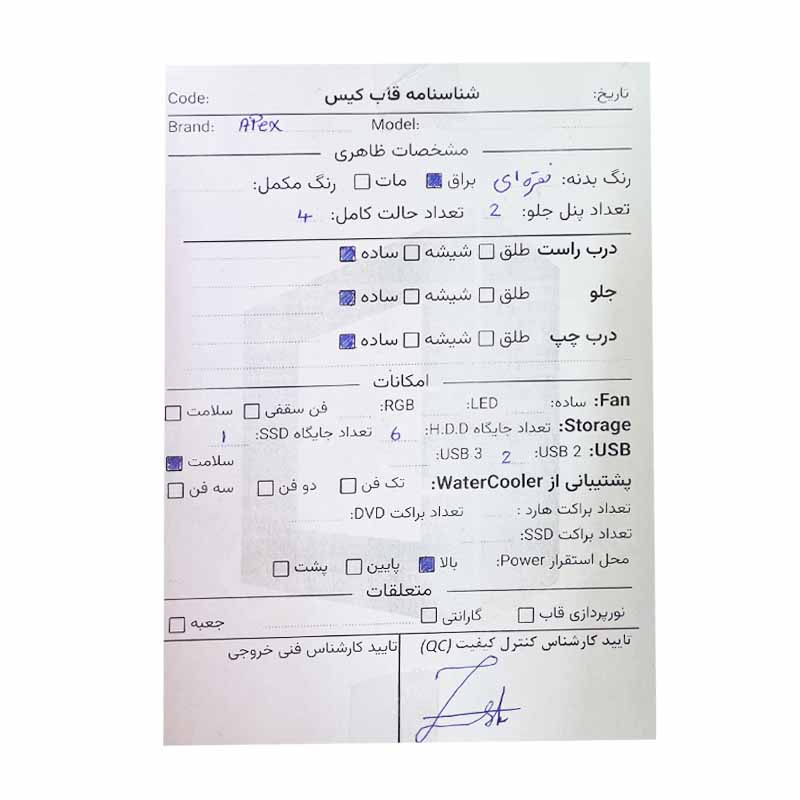 شناسنامه قاب کیس
تاریخ: Code:
Brand: APex Model:
مشخصات ظاهری
رنگ بدنه: نقره ای براق مات رنگ مکمل:
تعداد پنل جلو: 2 تعداد حالت کامل: 4
درب راست طلق شیشه ساده
جلو طلق شیشه ساده
درب چپ طلق شیشه ساده
امکانات
Fan: ساده: LED: RGB: فن سقفی سلامت
Storage: تعداد جایگاه H.D.D: 6 تعداد جایگاه SSD: 1
USB: USB 2: 2 USB 3: سلامت
پشتیبانی از WaterCooler: تک فن دو فن سه فن
تعداد براکت هارد : تعداد براکت DVD:
تعداد براکت SSD:
محل استقرار Power: بالا پایین پشت
متعلقات
نورپردازی قاب گارانتی جعبه
تایید کارشناس کنترل کیفیت (QC) تایید کارشناس فنی خروجی